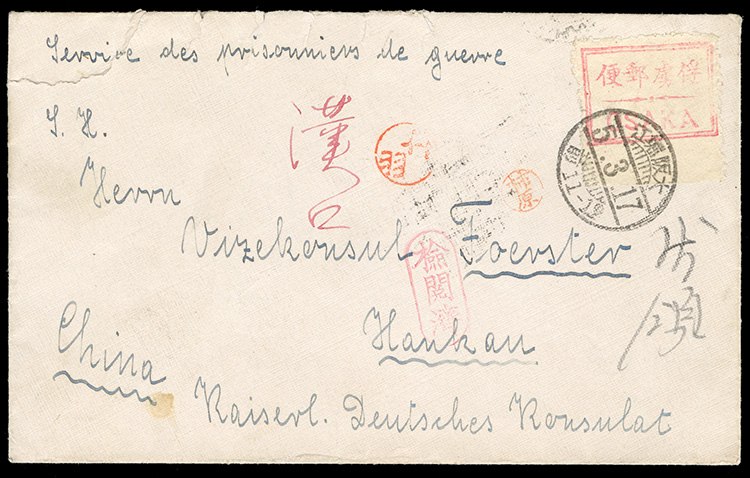 Service des prisonniers de guerre
便郵虜俘
OSAKA
S. H.
漢口
Herrn
5. 3. 17
柿原
Vizekonsul Foerster
檢閲濟
Hankau
China
Kaiserl. Deutsches Konsulat